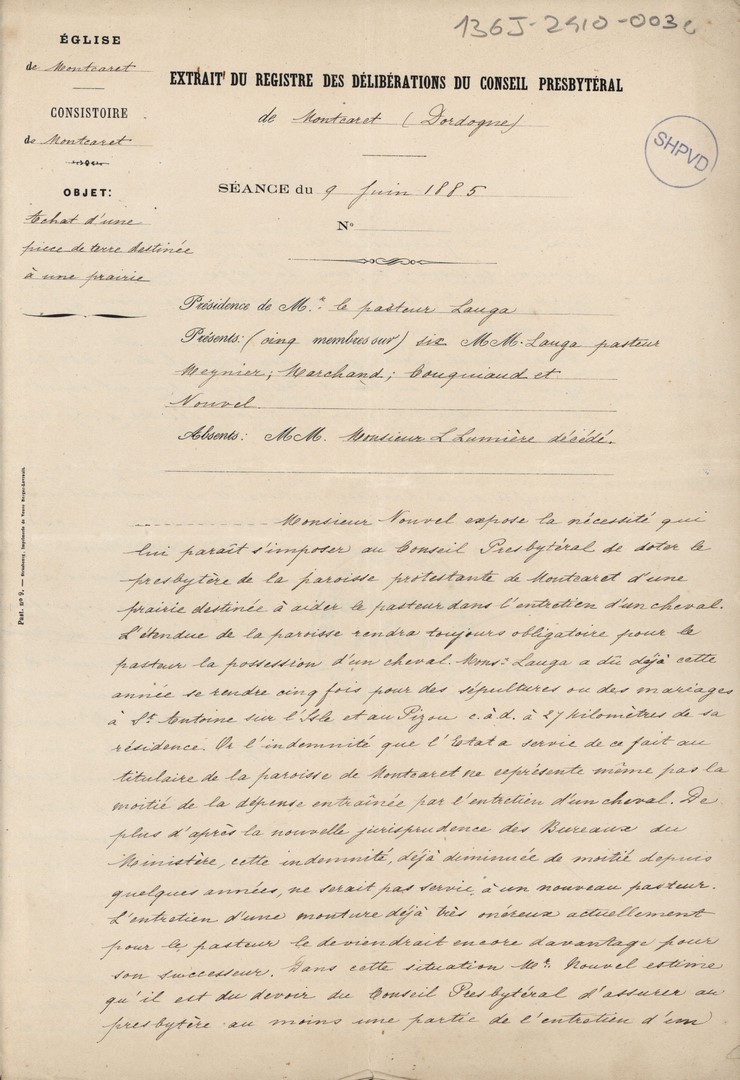 136J-2410-003c
ÉGLISE
de Montcaret
CONSISTOIRE
de Montcaret
OBJET:
Achat d'une
pièce de terre destinée
à une prairie
EXTRAIT DU REGISTRE DES DÉLIBÉRATIONS DU CONSEIL PRESBYTÉRAL
de Montcaret (Dordogne)
SHPVD
SÉANCE du 9 Juin 1885
N°
Présidence de M.r le pasteur Lauga
Présents: (cinq membres sur) six MM. Lauga pasteur
Meynier; Marchand; Couquiaud et
Nouvel
Absents: MM. Monsieur L Lumière décédé.
Past. no 9. — Strasbourg, imprimerie de Veuve Berger-Levrault.
Monsieur Nouvel expose la nécessité qui
lui paraît s'imposer au Conseil Presbytéral de doter le
presbytère de la paroisse protestante de Montcaret d'une
prairie destinée à aider le pasteur dans l'entretien d'un cheval.
L'étendue de la paroisse rendra toujours obligatoire pour le
pasteur la possession d'un cheval. Mons.r Lauga a dû déjà cette
année se rendre cinq fois pour des sépultures ou des mariages
à St. Antoine sur l'Isle et au Pizou c.à.d. à 27 kilomètres de sa
résidence. Or l'indemnité que l'Etat a servie de ce fait au
titulaire de la paroisse de Montcaret ne représente même pas la
moitié de la dépense entraînée par l'entretien d'un cheval. De
plus d'après la nouvelle jurisprudence des Bureaux du
Ministère, cette indemnité, déjà diminuée de moitié depuis
quelques années, ne serait pas servie à un nouveau pasteur.
L'entretien d'une monture déjà très onéreux actuellement
pour le pasteur le deviendrait encore davantage pour
son successeur. Dans cette situation Mr. Nouvel estime
qu'il est du devoir du Conseil Presbytéral d'assurer au
presbytère au moins une partie de l'entretien d'un